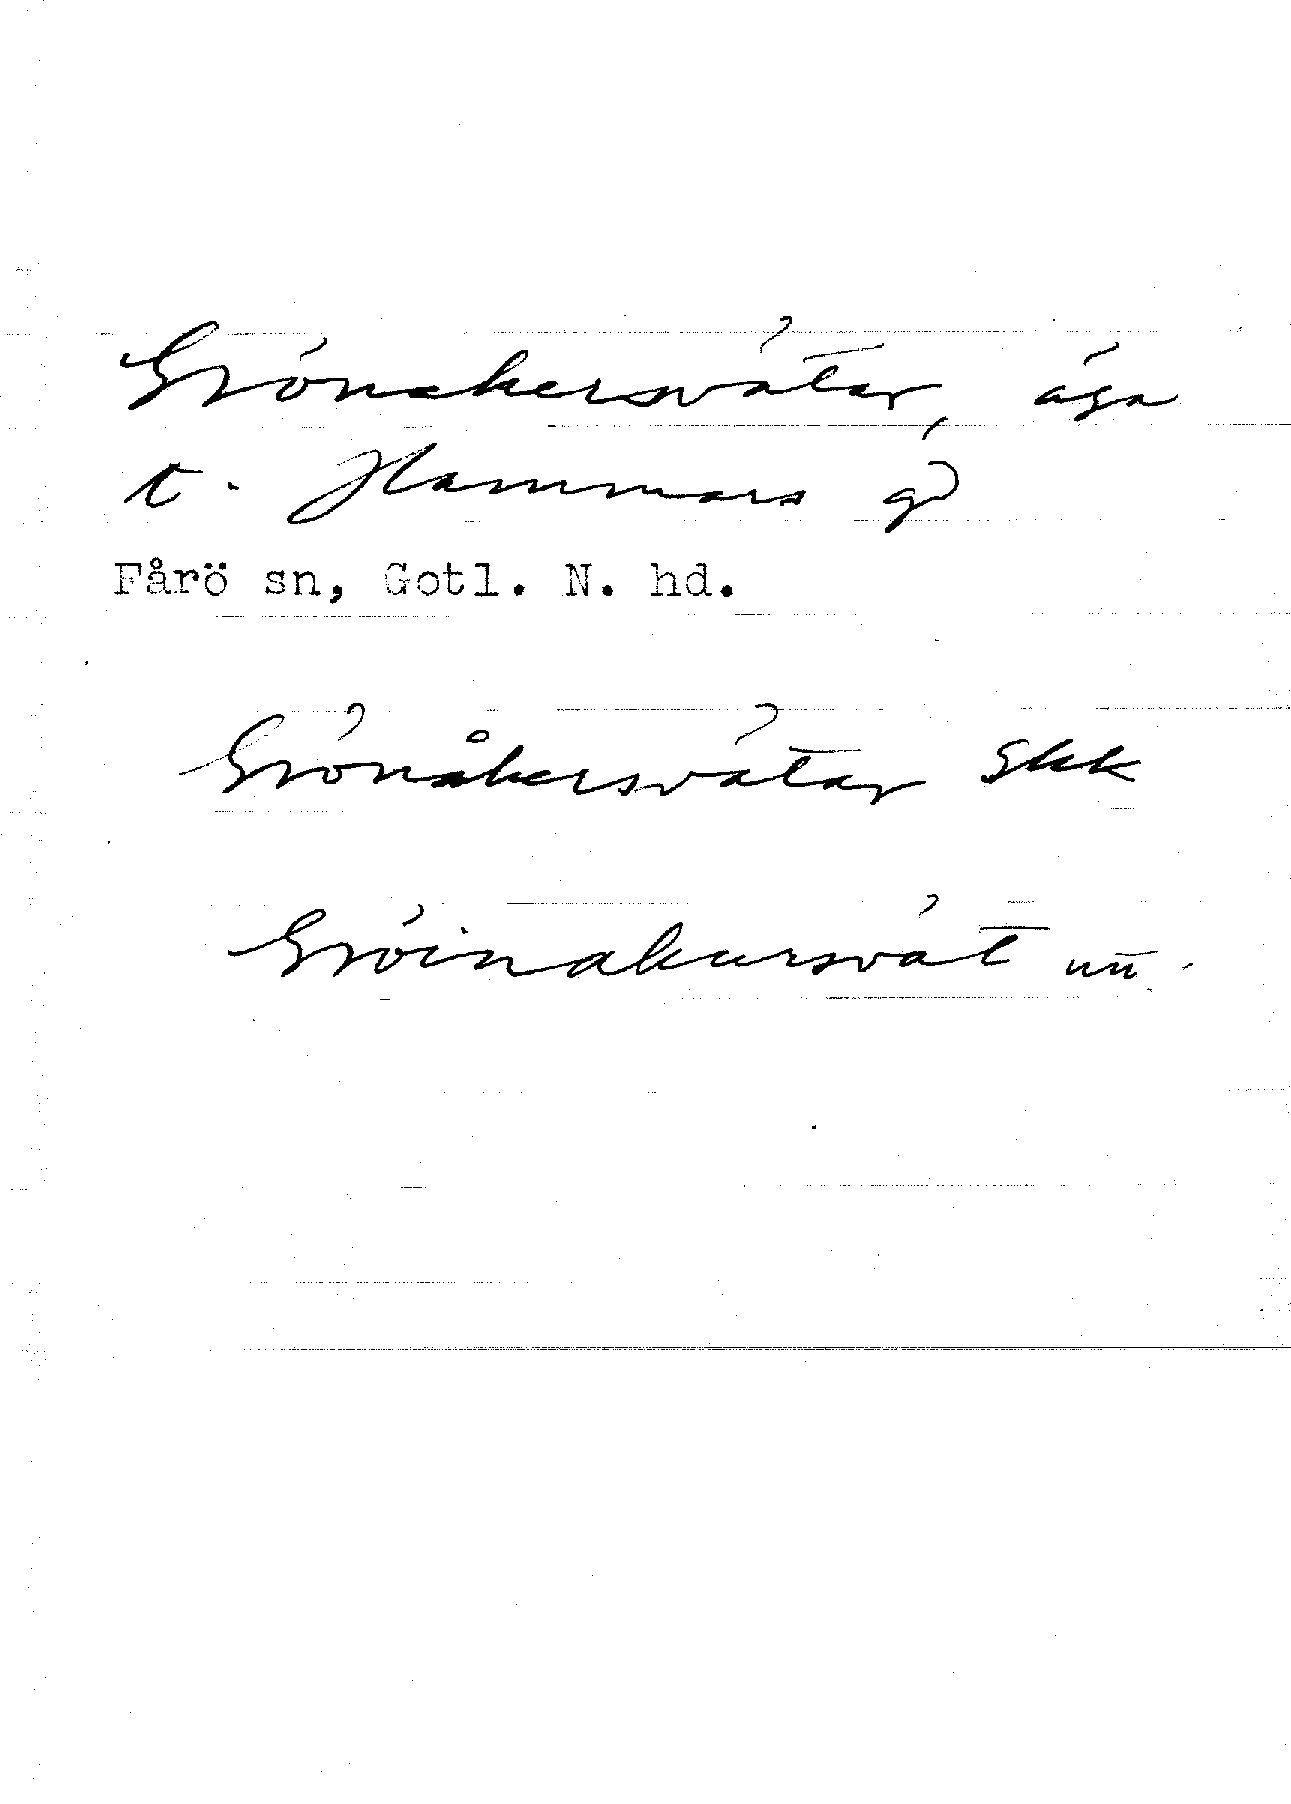 Grönakersvätar, äga
t. Hammars gd
Fårö sn, Gotl. N. hd.
Grönåkersvätar Skk
Gröinakursvät uu.